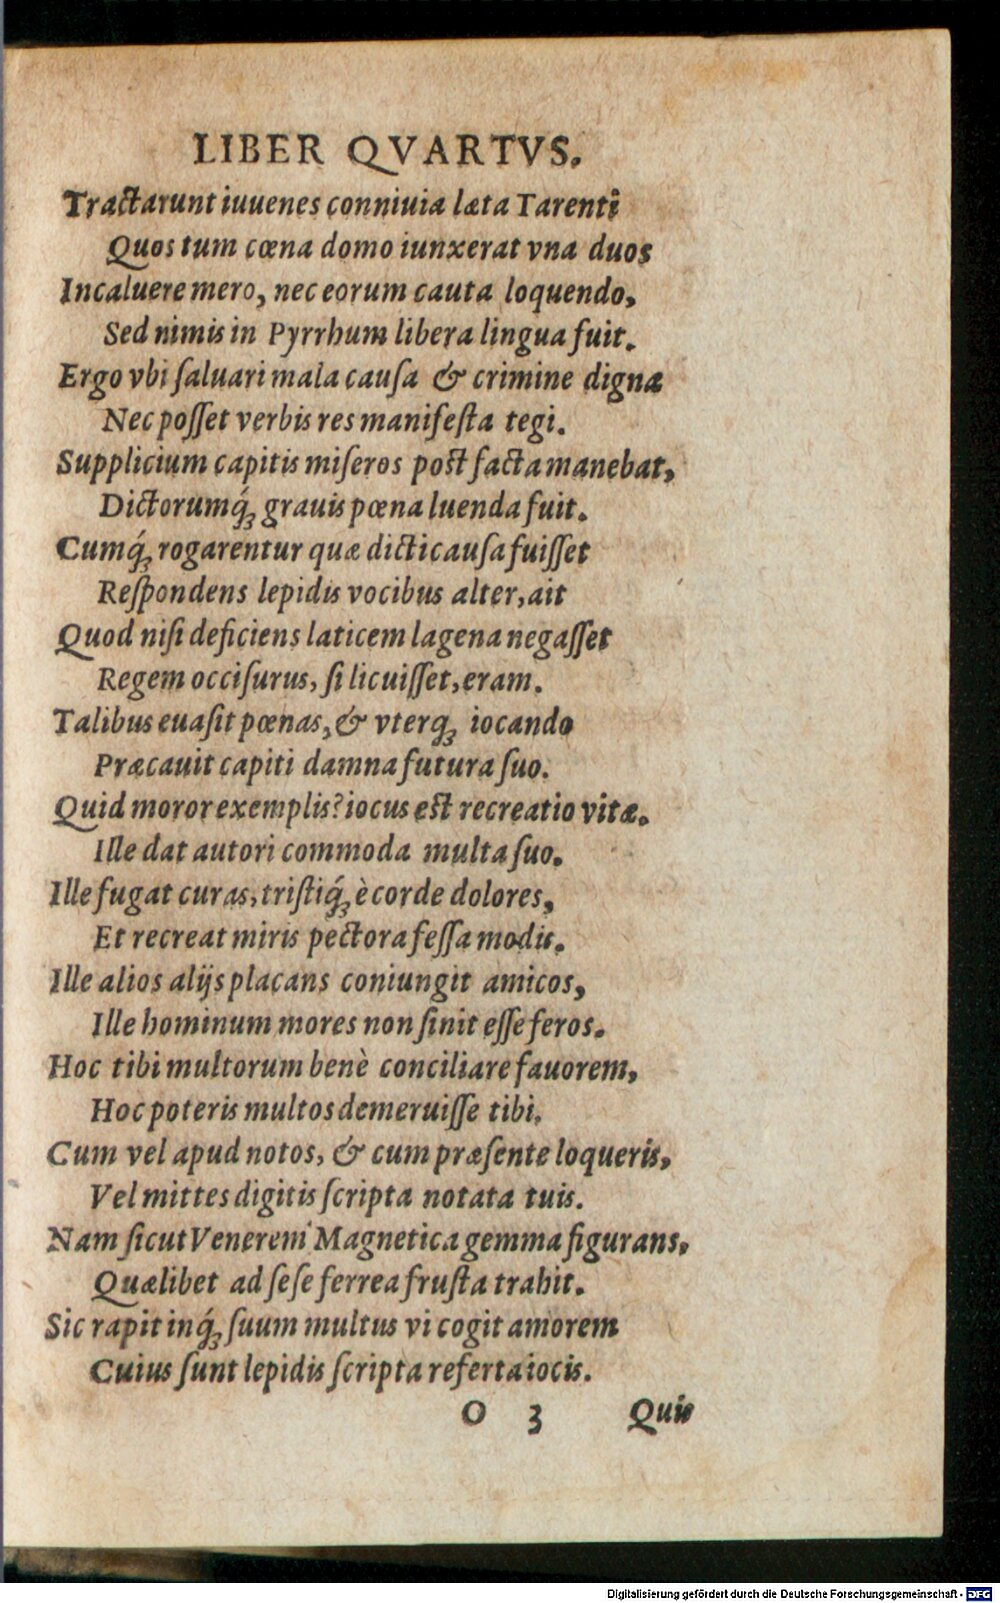 LIBER QVARTVS.
Tractarunt iuuenes conniuia læta Tarenti
Quos tum cœna domo iunxerat vna duos
Incaluere mero, nec eorum cauta loquendo,
Sed nimis in Pyrrhum libera lingua fuit.
Ergo vbi ſaluari mala cauſa & crimine digna
Nec poſſet verbis res manifeſta tegi.
Supplicium capitis miſeros post facta manebat,
Dictorumq́ꝫ grauis pœna luenda fuit.
Cumq́ꝫ rogarentur quæ dicti cauſa fuiſſet
Reſpondens lepidis vocibus alter, ait
Quod niſi deficiens laticem lagena negaſſet
Regem occiſurus, ſi licuiſſet, eram.
Talibus euaſit pœnas, & vterqꝫ iocando
Præcauit capiti damna futura ſuo.
Quid moror exemplis? iocus est recreatio vitæ.
Ille dat autori commoda multa ſuo.
Ille fugat curas, triſtiq́ꝫ è corde dolores,
Et recreat miris pectora feſſa modis.
Ille alios alijs placans coniungit amicos,
Ille hominum mores non ſinit eſſe feros.
Hoc tibi multorum benè conciliare fauorem,
Hoc poteris multos demeruiſſe tibi.
Cum vel apud notos, & cum præſente loqueris,
Vel mittes digitis ſcripta notata tuis.
Nam ſicut Venerem Magnetica gemma figurans,
Quælibet ad ſeſe ferrea fruſta trahit.
Sic rapit inq́ꝫ ſuum multus vi cogit amorem
Cuius ſunt lepidis ſcripta referta iocis.
O 3 Quis
Digitalisierung gefördert durch die Deutsche Forschungsgemeinschaft - DFG